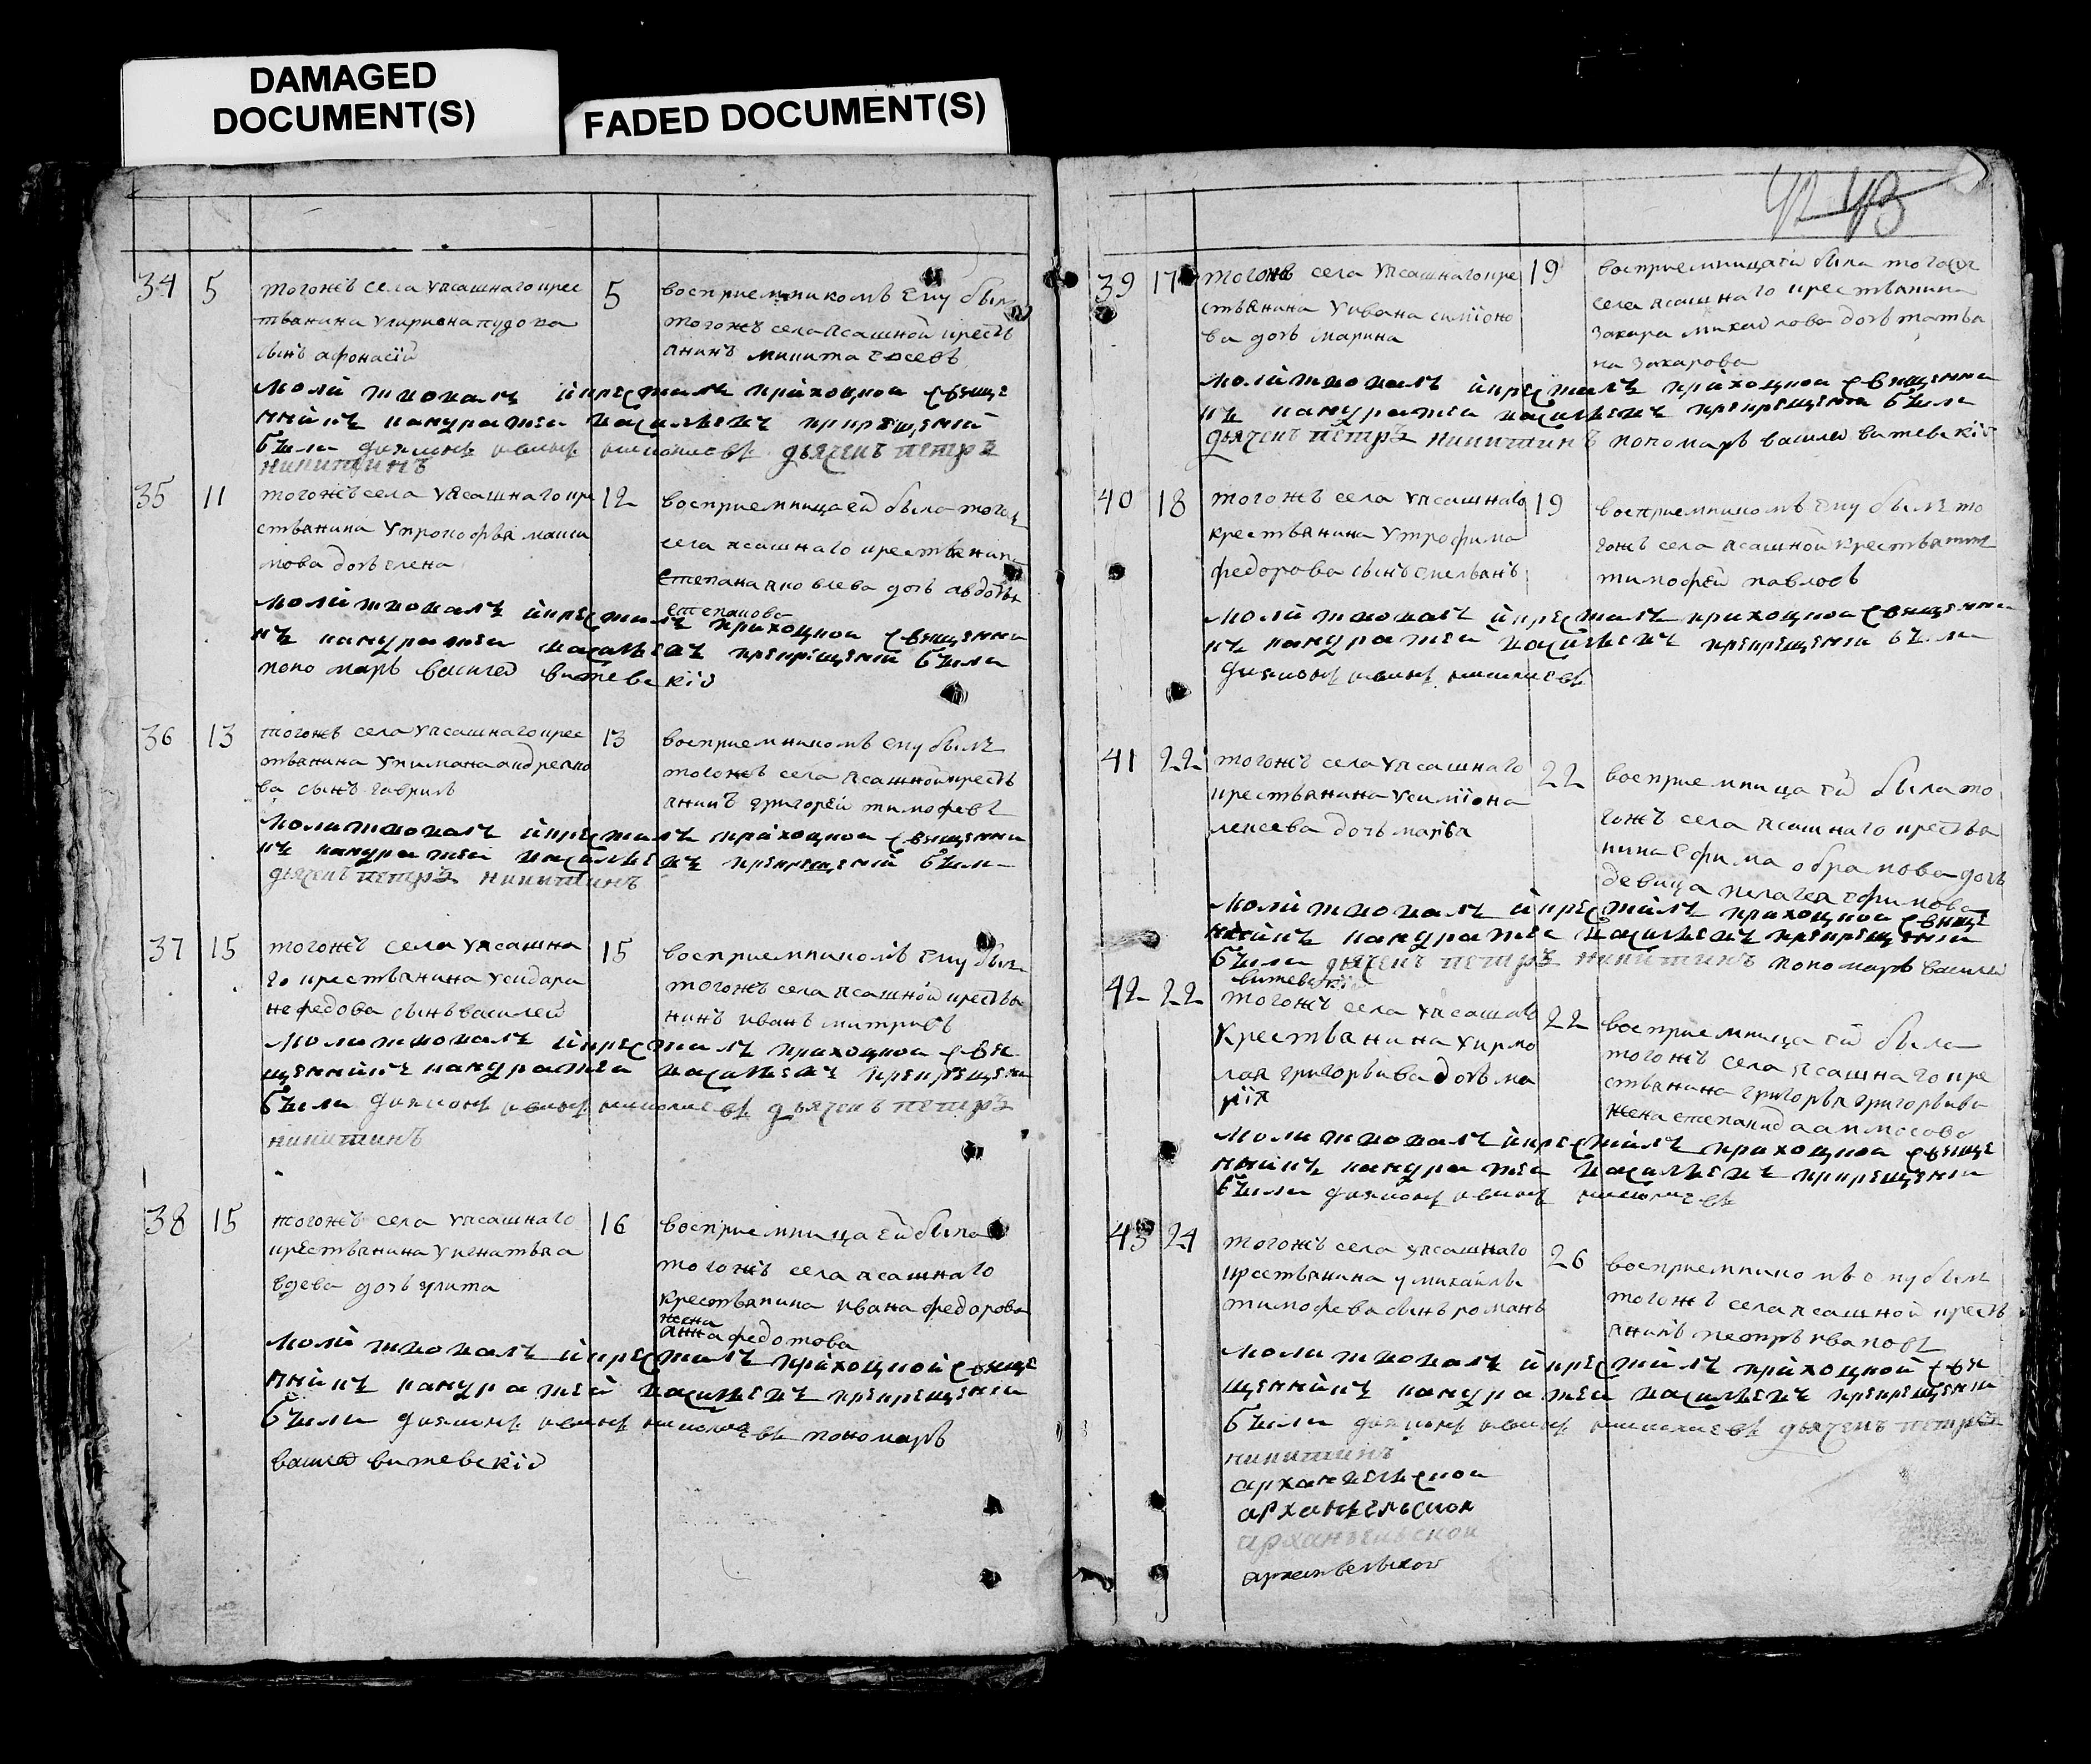 DAMAGED
DOCUMENT(S)
FADED DOCUMENT(S)
34 5 тогожъ села уясашнаго крес
тьянина укирияна пудова
сынъ афонасiй
5 восприемникомъ ему былъ
тогожъ села ясашной кресть
янинъ никита евсеевъ
молитвовалъ икрестилъ приходной свяще
нникъ кандратей васильевъ прикрещенiи
были дияконъ иванъ николаевъ дьячекъ петръ
никитинъ
35 11 тогожъ села уясашнаго кре
стьянина упрокофья макси
мова дочь елена
12 восприемница ей была тогож
села ясашнаго крестьянина
степана яковлева дочь авдотья
степанова
молитвовалъ икрестилъ приходной священни
къ кандратей васильевъ прикрещенiи были
пономарь василей витевскiй
36 13 тогожъ села уясашнаго крес
тьянина укимана андреяно
ва сынъ гаврилъ
13 восприемникомъ ему былъ
тогожъ села ясашной кресть
янинъ григорей тимофевъ
молитвовалъ икрестилъ приходной священни
къ кандратей васильевъ прикрещенiи были
дьячекъ петръ никитинъ
37 15 тогожъ села уясашна
го крестьянина усидара
нефедова сынъ василей
15 восприемникомъ ему былъ
тогожъ села ясашной крестья
нинъ иванъ митривъ
молитвовалъ икрестилъ приходной свя
щенникъ кандратей васильевъ прикрещени
были дияконъ иванъ николаевъ дьячекъ петръ
никитинъ
38 15 тогожъ села уясашнаго
крестьянина уигнатья а
вдева дочь улита
16 восприемница ей была
тогожъ села ясашнаго
крестьянина ивана федорова
жена
анна федотова
молитвовалъ икрестилъ приходной свяще
нникъ кандратей васильевъ прикрещенiи
были дияконъ иванъ николаевъ пономарь
василей витевскiй
42 43
39 17 тогожъ села уясашнаго кре
стьянина уивана симiоно
ва дочь марина
19 восприемницай была тогож
села ясашнаго крестьянина
захара михайлова дочь татья
на захарова
молитвовалъ икрестилъ приходной священни
къ кандратей васильевъ прикрещенiи были
дьячекъ петръ никитинъ пономарь василей витевскiй
40 18 тогожъ села уясашнаго
крестьянина утрофима
федорова сынъ емельянъ
19 восприемникомъ ему былъ то
гожъ села ясашной крестьянинъ
тимофей павловъ
молитвовалъ икрестилъ приходной священни
къ кандратей васильевъ прикрещенiи были
дияконъ иванъ николаевъ
41 22 тогожъ села уясашнаго
крестьянина усимiона
лексева дочь марфа
22 восприемница ей была то
гожъ села ясашнаго крестья
нина ефима обрамова дочь
девица пелагея ефимова
молитвовалъ икрестилъ приходной свяще
нникъ кандратей васильевъ прикрещенiи
были дьячекъ петръ никитинъ пономарь василей
витевскiй
42 22 тогожъ села уясашнаго
крестьянина уирмо
лая григорьива дочь ма
рiя
22 восприемница ей была
тогожъ села ясашнаго кре
стьянина григорья григорьива
жена степанида аммосова
молитвовалъ икрестилъ приходной свяще
нникъ кандратей васильевъ прикрещенiи
были дияконъ иванъ николаевъ
43 24 тогожъ села уясашнаго
крестьянина у михайлы
тимофева сынъ романъ
26 восприемникомъ ему былъ
тогожъ села ясашной кресть
янинъ петръ ивановъ
молитвовалъ икрестилъ приходной свя
щенникъ кандратей васильевъ прикрещенiи
были дияконъ иванъ николаевъ дьячекъ петръ
никитинъ
архангельской
архангельской
архангельской
архангельской